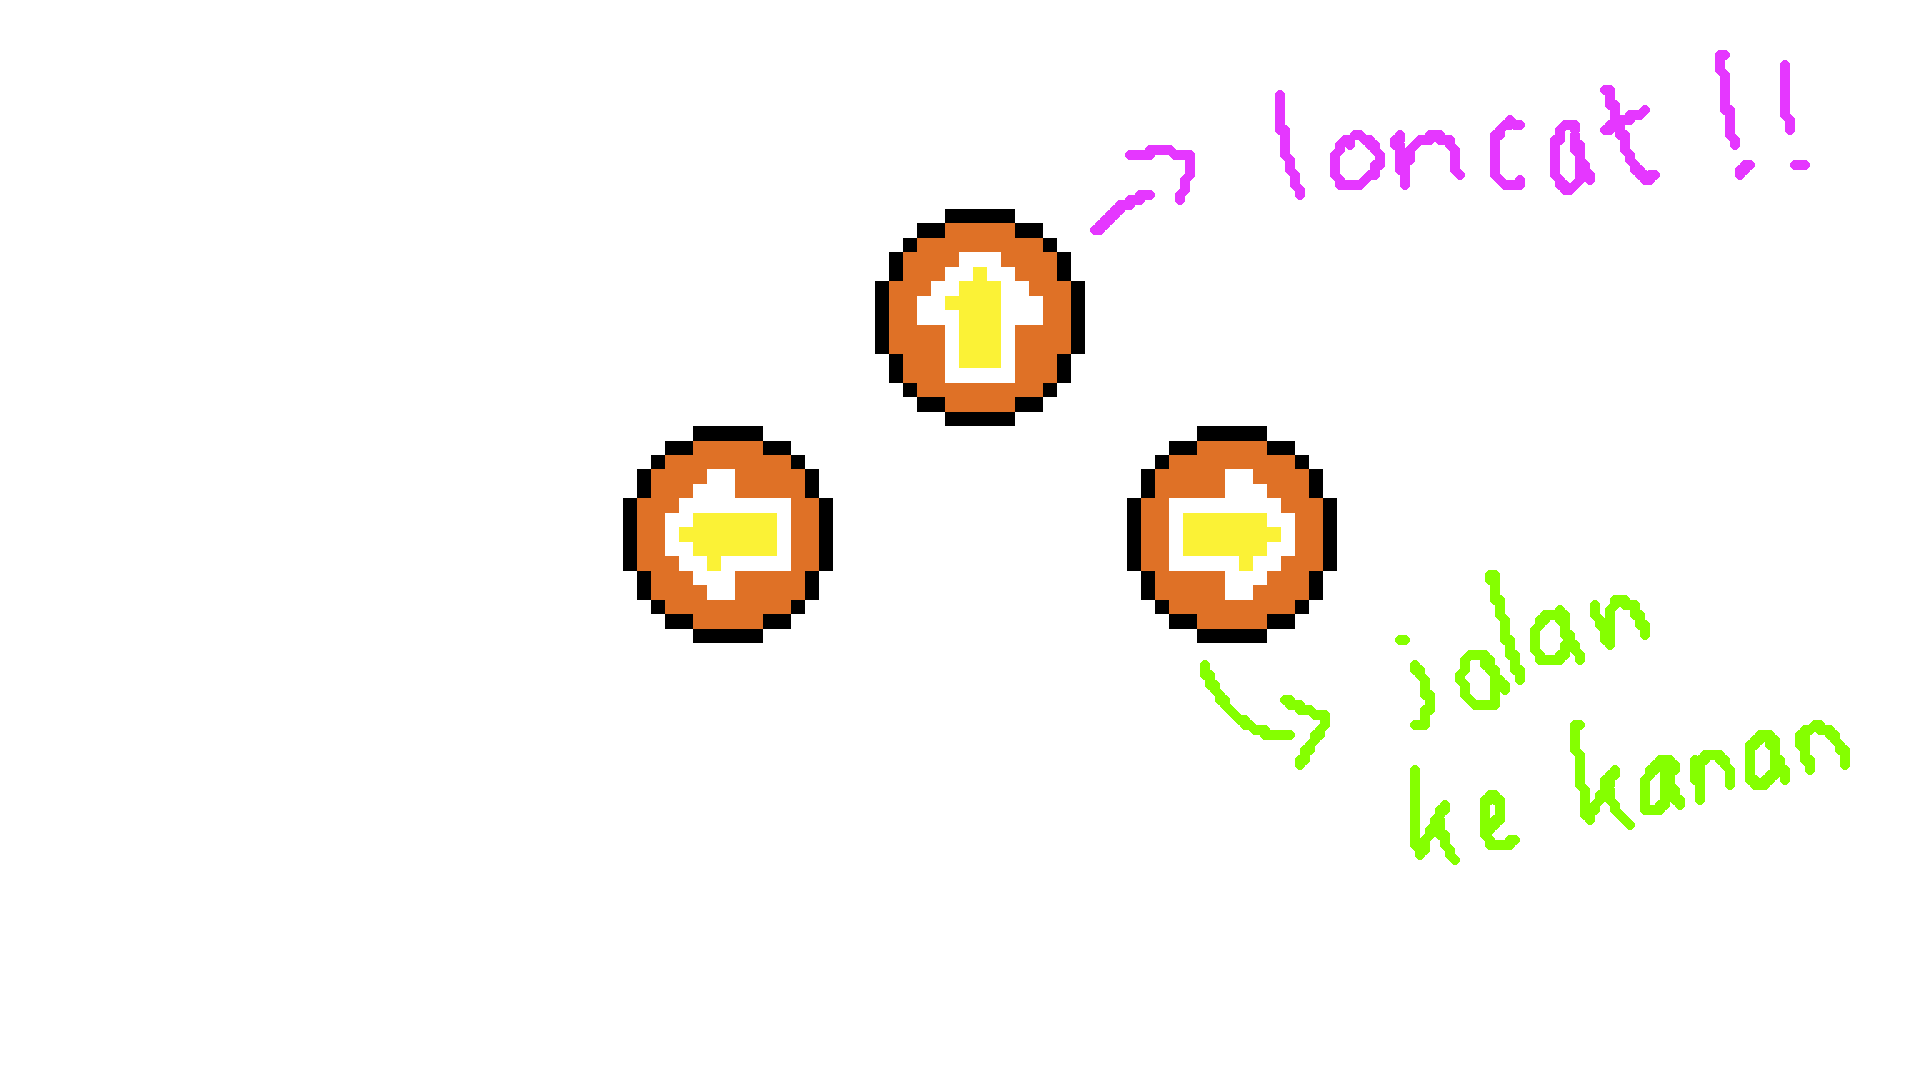 loncat !!
jalan
ke kanan